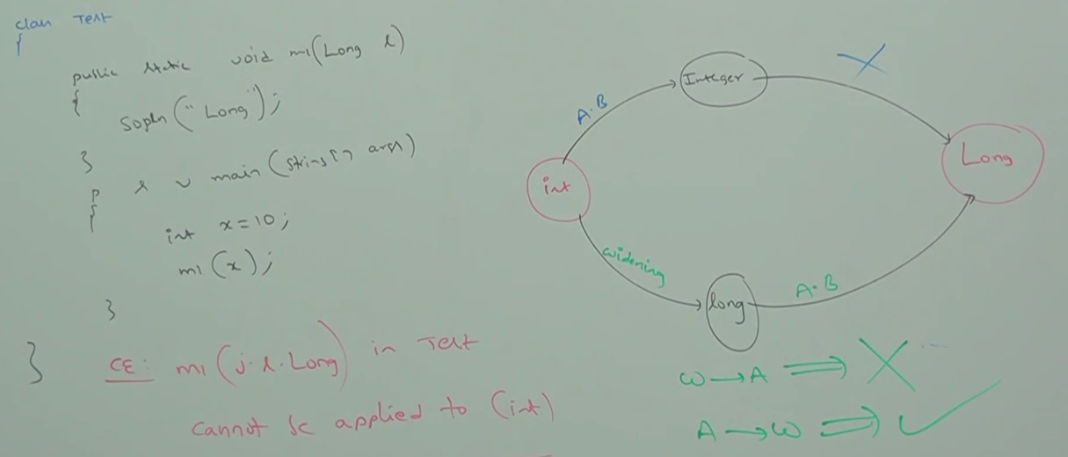 class Test
{
public static void m1(Long l)
{
Sopln("Long");
}
p s v main(String[] args)
{
int x=10;
m1(x);
}
}
CE: m1(j.l.Long) in Test
cannot be applied to (int)
int
A.B
Integer
X
Long
widening
long
A.B
W→A ⟹ X
A→W ⟹ ✓